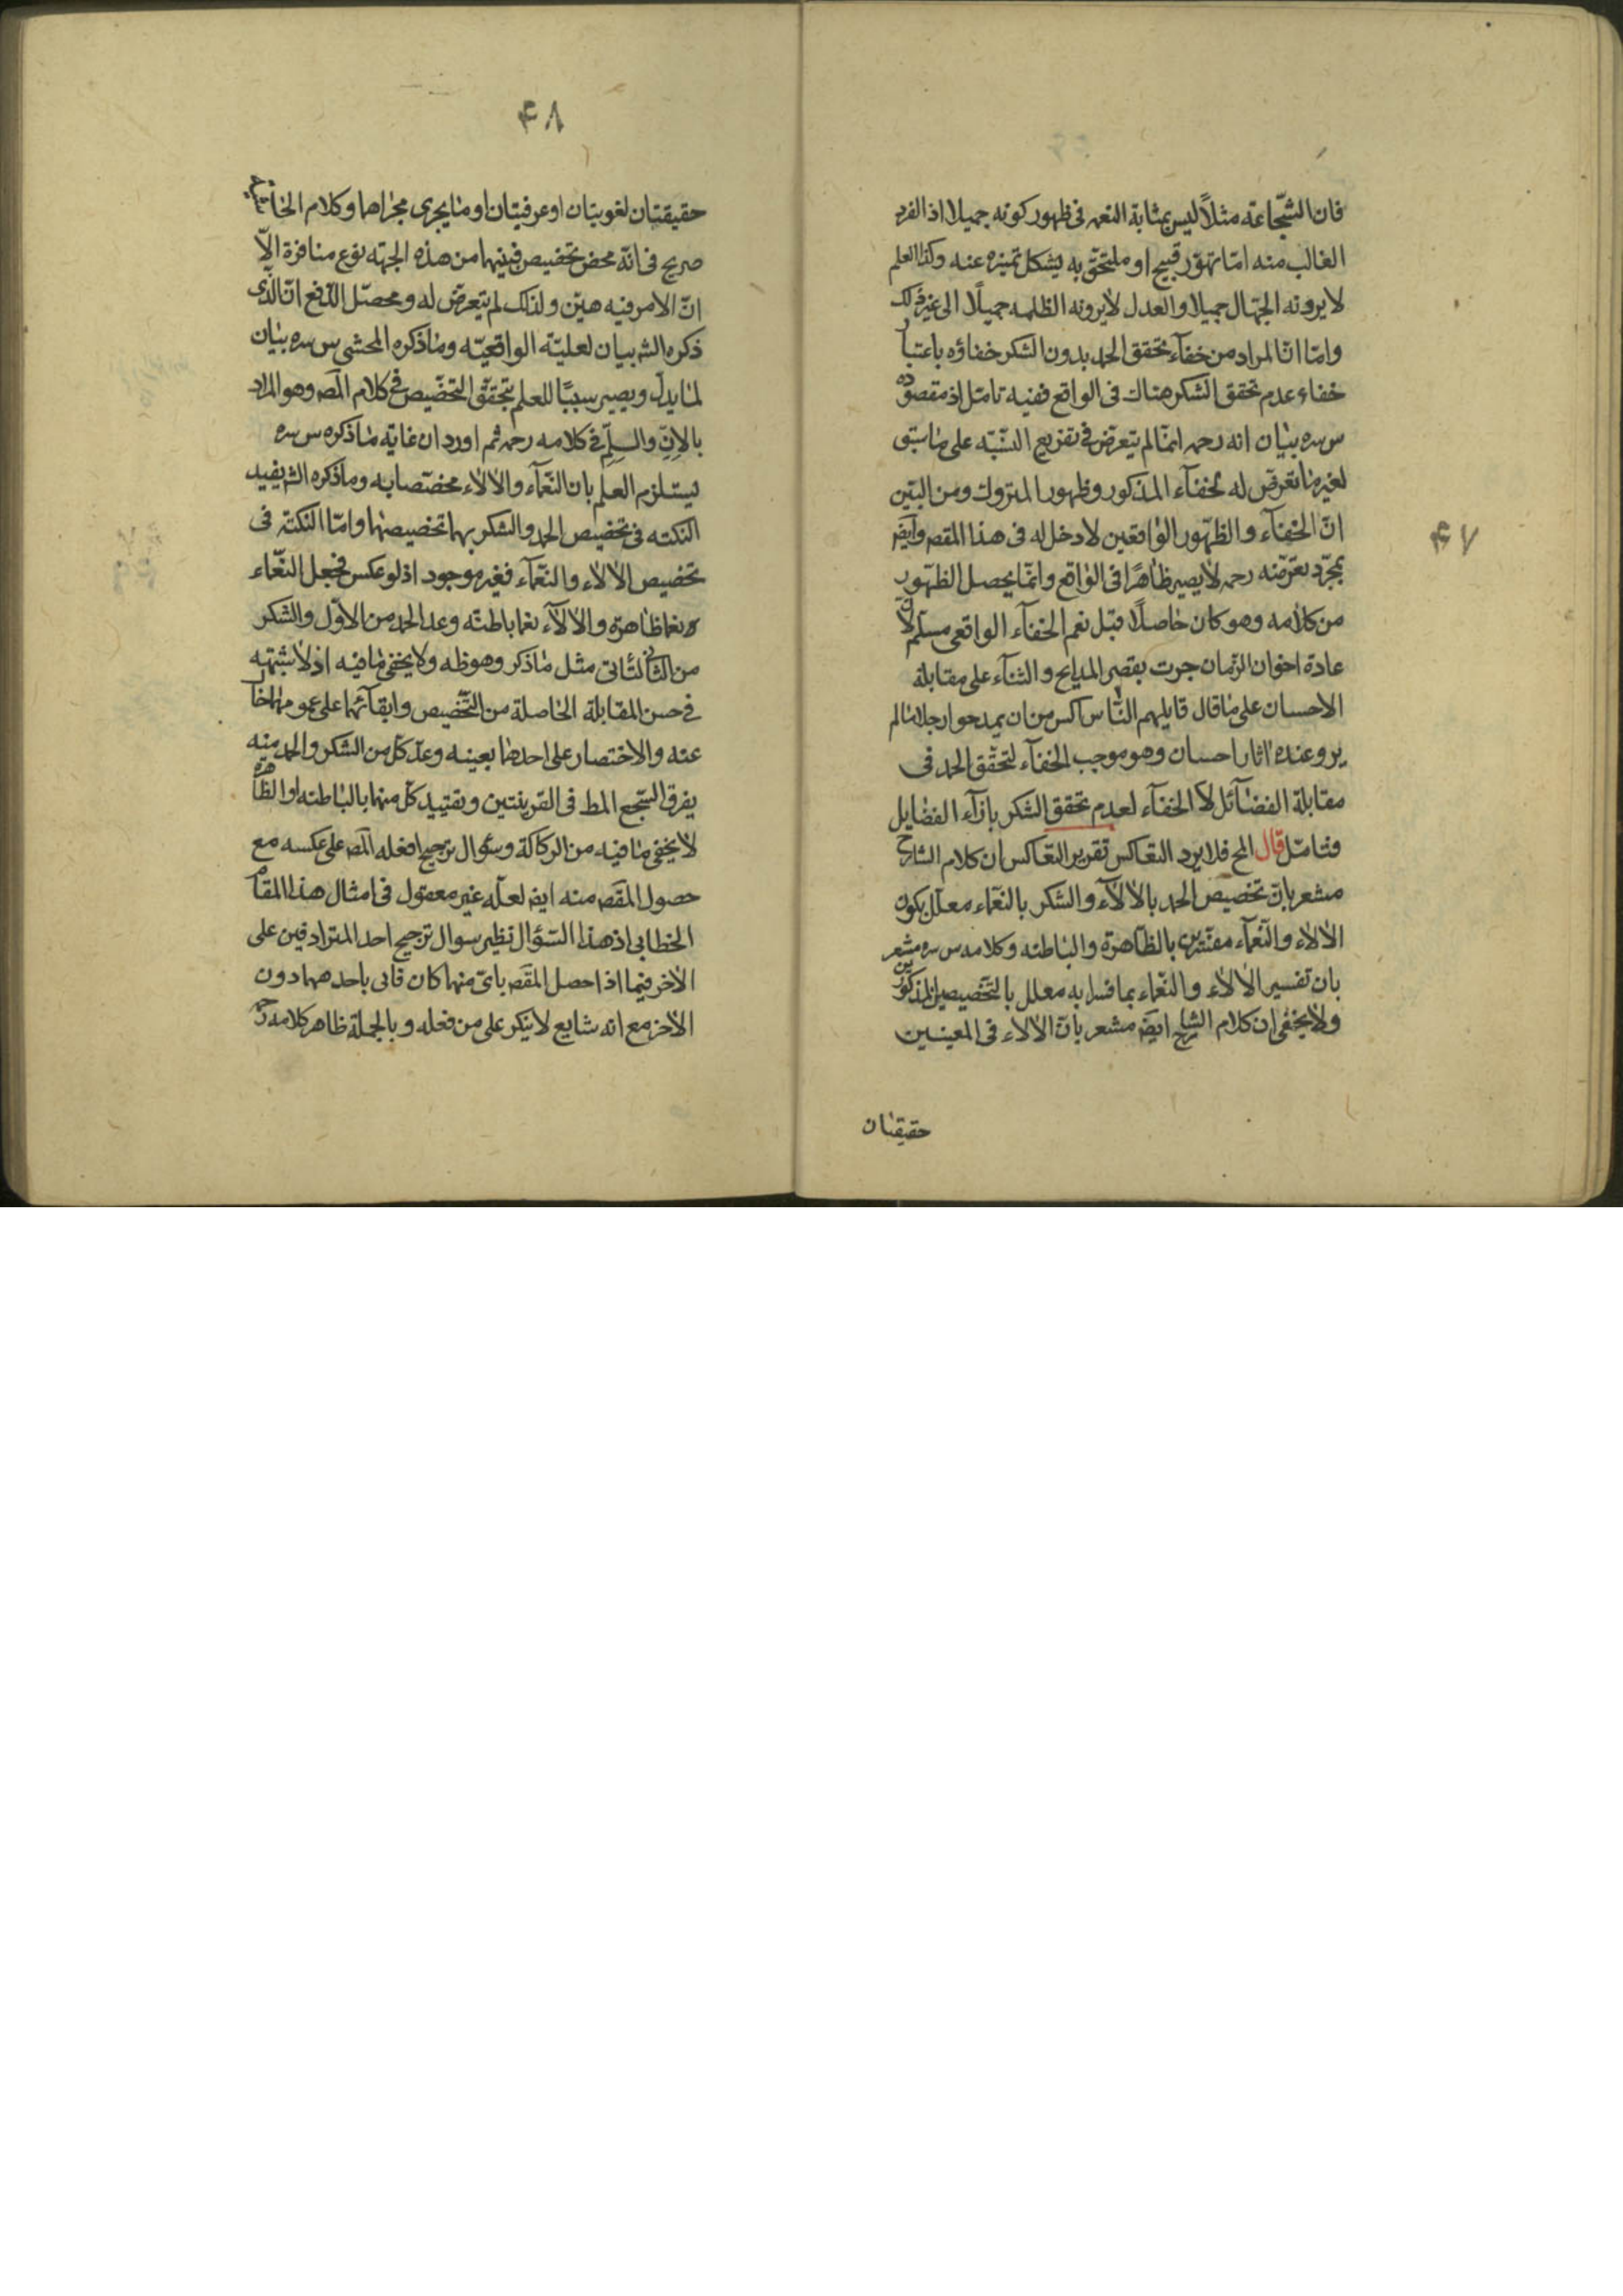 فان الشجاعة مثلًا ليس بمثابة النعم فى ظهور كونه جميلا اذ الفرد
الغالب منه امّا تهوّر قبيح او ملتحق به يشكل تميزه عنه وكذا العلم
لا يرونه الجهّال جميلا والعدل لا يرونه الظلمه جميلًا الى غير ذلك
وامّا انّ المراد من خفآء تحقق الحمد بدون الشكر خفاؤه باعتبار
خفاء عدم تحقق الشكر هناك فى الواقع ففيه تامّل اذ مقصوده
س سره بيان انه رحمه انمّا لم يتعرّض فى تفريع النسّبة على ما سبق
لغير ما تعرّض له لخفآء المذكور وظهور المتروك ومن البيّن
انّ الخفآء والظهّور الواقعين لا دخل له فى هذا المقص وايضَ
بمجرّد تعرّضه رحمه لا يصير ظاهرًا فى الواقع وانمّا يحصل الظهّور
من كلامه وهو كان حاصلًا قبل نعم الخفآء الواقعى مسلّم لانّ
عادة اخوان الزمان جرت بقصر المدايح والثنآء على مقابلة
الاحسان على ما قال قايلهم النّاس اكس من ان يمدحوا رجلا ما لم
يروعنده اثار احسان وهو موجب لخفآء لتحقّق الحمد فى
مقابلة الفضآئل لا الخفآء لعدم تحقق الشكر بازآء الفضايل
فتامّل قال المح فلا يرد التعّاكس تقرير التعّاكس ان كلام الشارح
مشعر بانّ تخصيص الحمد بالالآء والشكر بالنعّماء معلّل بكون
الالاء والنعّمآء مفسّرين بالظّاهرة والباطنه وكلامه س سره مشعر
بان تفسير الالاء والنعّماء بما فسرا به معلل بالتخّصيصين المذكورين
ولا يخفى ان كلام الشارح ايضَ مشعر بانّ الالاء فى المعينين
حقيقتان
۴۷
۴۸
حقيقتان لغويتان او عرفيتان او ما يجرى مجراها وكلام
صريح فى انّه محض تخصيص فبينهما من هذه الجهة نوع منافرة الّا
انّ الامر فيه هيّن ولذلك لم يتعرّض له ومحصّل الدّفع انّ الّذى
ذكره الشه بيان لعليّته الواقعيّه وما ذكره المحشى س سره بيان
لما يدلّ ويصير سببًا للعلم بتحقّق التخّصيص فى كلام المصَ وهو المراد
بالاِنّ والسلِّم فى كلامه رحمه ثم اورد ان غاية ما ذكره س سره
يستلزم العلم بان النعّمآء والالاء مختصتا به وما ذكره الشه يفيد
النكته فى تخصيص الحمد والشكر بهما تخصيصها وامّا النكتة فى
تخصيص الالاء والنعّمآء فغير موجود اذ لو عكس فجعل النعّماء
نعما ظاهرة والالآء نعما باطنّه وعد الحمد من الاوّل والشكر
من الثانى لتّاتى مثل ما ذكر وهو ظه ولا يخفى ما فيه اذ لا شبّهة
فى حسن المقابلة الحاصلة من التخّصيص وابقآئهما على عمومهما
عنه والاختصار على احدهما بعينه وعدّ كلّ من الشكر والحمد منه
يفرق السّجع المط فى القرينتين وتقييد كلّ منهما بالباطنه او الظاهره
لا يخفى ما فيه من الركاكة وسؤال ترجيح ما فعله المصَ على عكسه مع
حصول المقصَ منه ايضَ لعلّه غير معقول فى امثال هذا المقام
الخطابى اذ هذا السّؤال نظير سوال ترجيح احد المترادفين على
الاخر فيما اذا حصل المقصَ باىّ منهما كان فاتى باحدهما دون
الاخر مع انه شايع لا ينكر على من فعله وبالجملة ظاهر كلامه رحمه